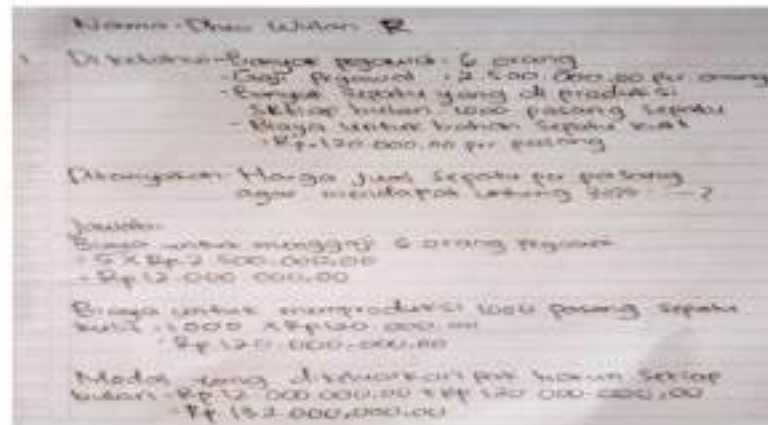 Nama : Dhea Wulan R
1. Diketahui - Banyak pegawai : 6 orang
- Gaji pegawai : 2.500.000,00 per orang
- Banyak sepatu yang di produksi
setiap bulan 1000 pasang sepatu
- Biaya untuk bahan sepatu kulit
: Rp.120.000,00 per pasang
Ditanyakan : Harga jual sepatu per pasang
agar mendapat untung 20% - ?
Jawab :
Biaya untuk menggaji 6 orang pegawai
= 5 X Rp 2 500.000,00
= Rp 12 000 000,00
Biaya untuk memproduksi 1000 pasang sepatu
kulit : 1000 X Rp120 000,00
: Rp 120.000.000,00
Modal yang dikeluarkan pak setiap
bulan = Rp 12 000 000,00 + Rp 120 000 000,00
= Rp 132.000,000,00